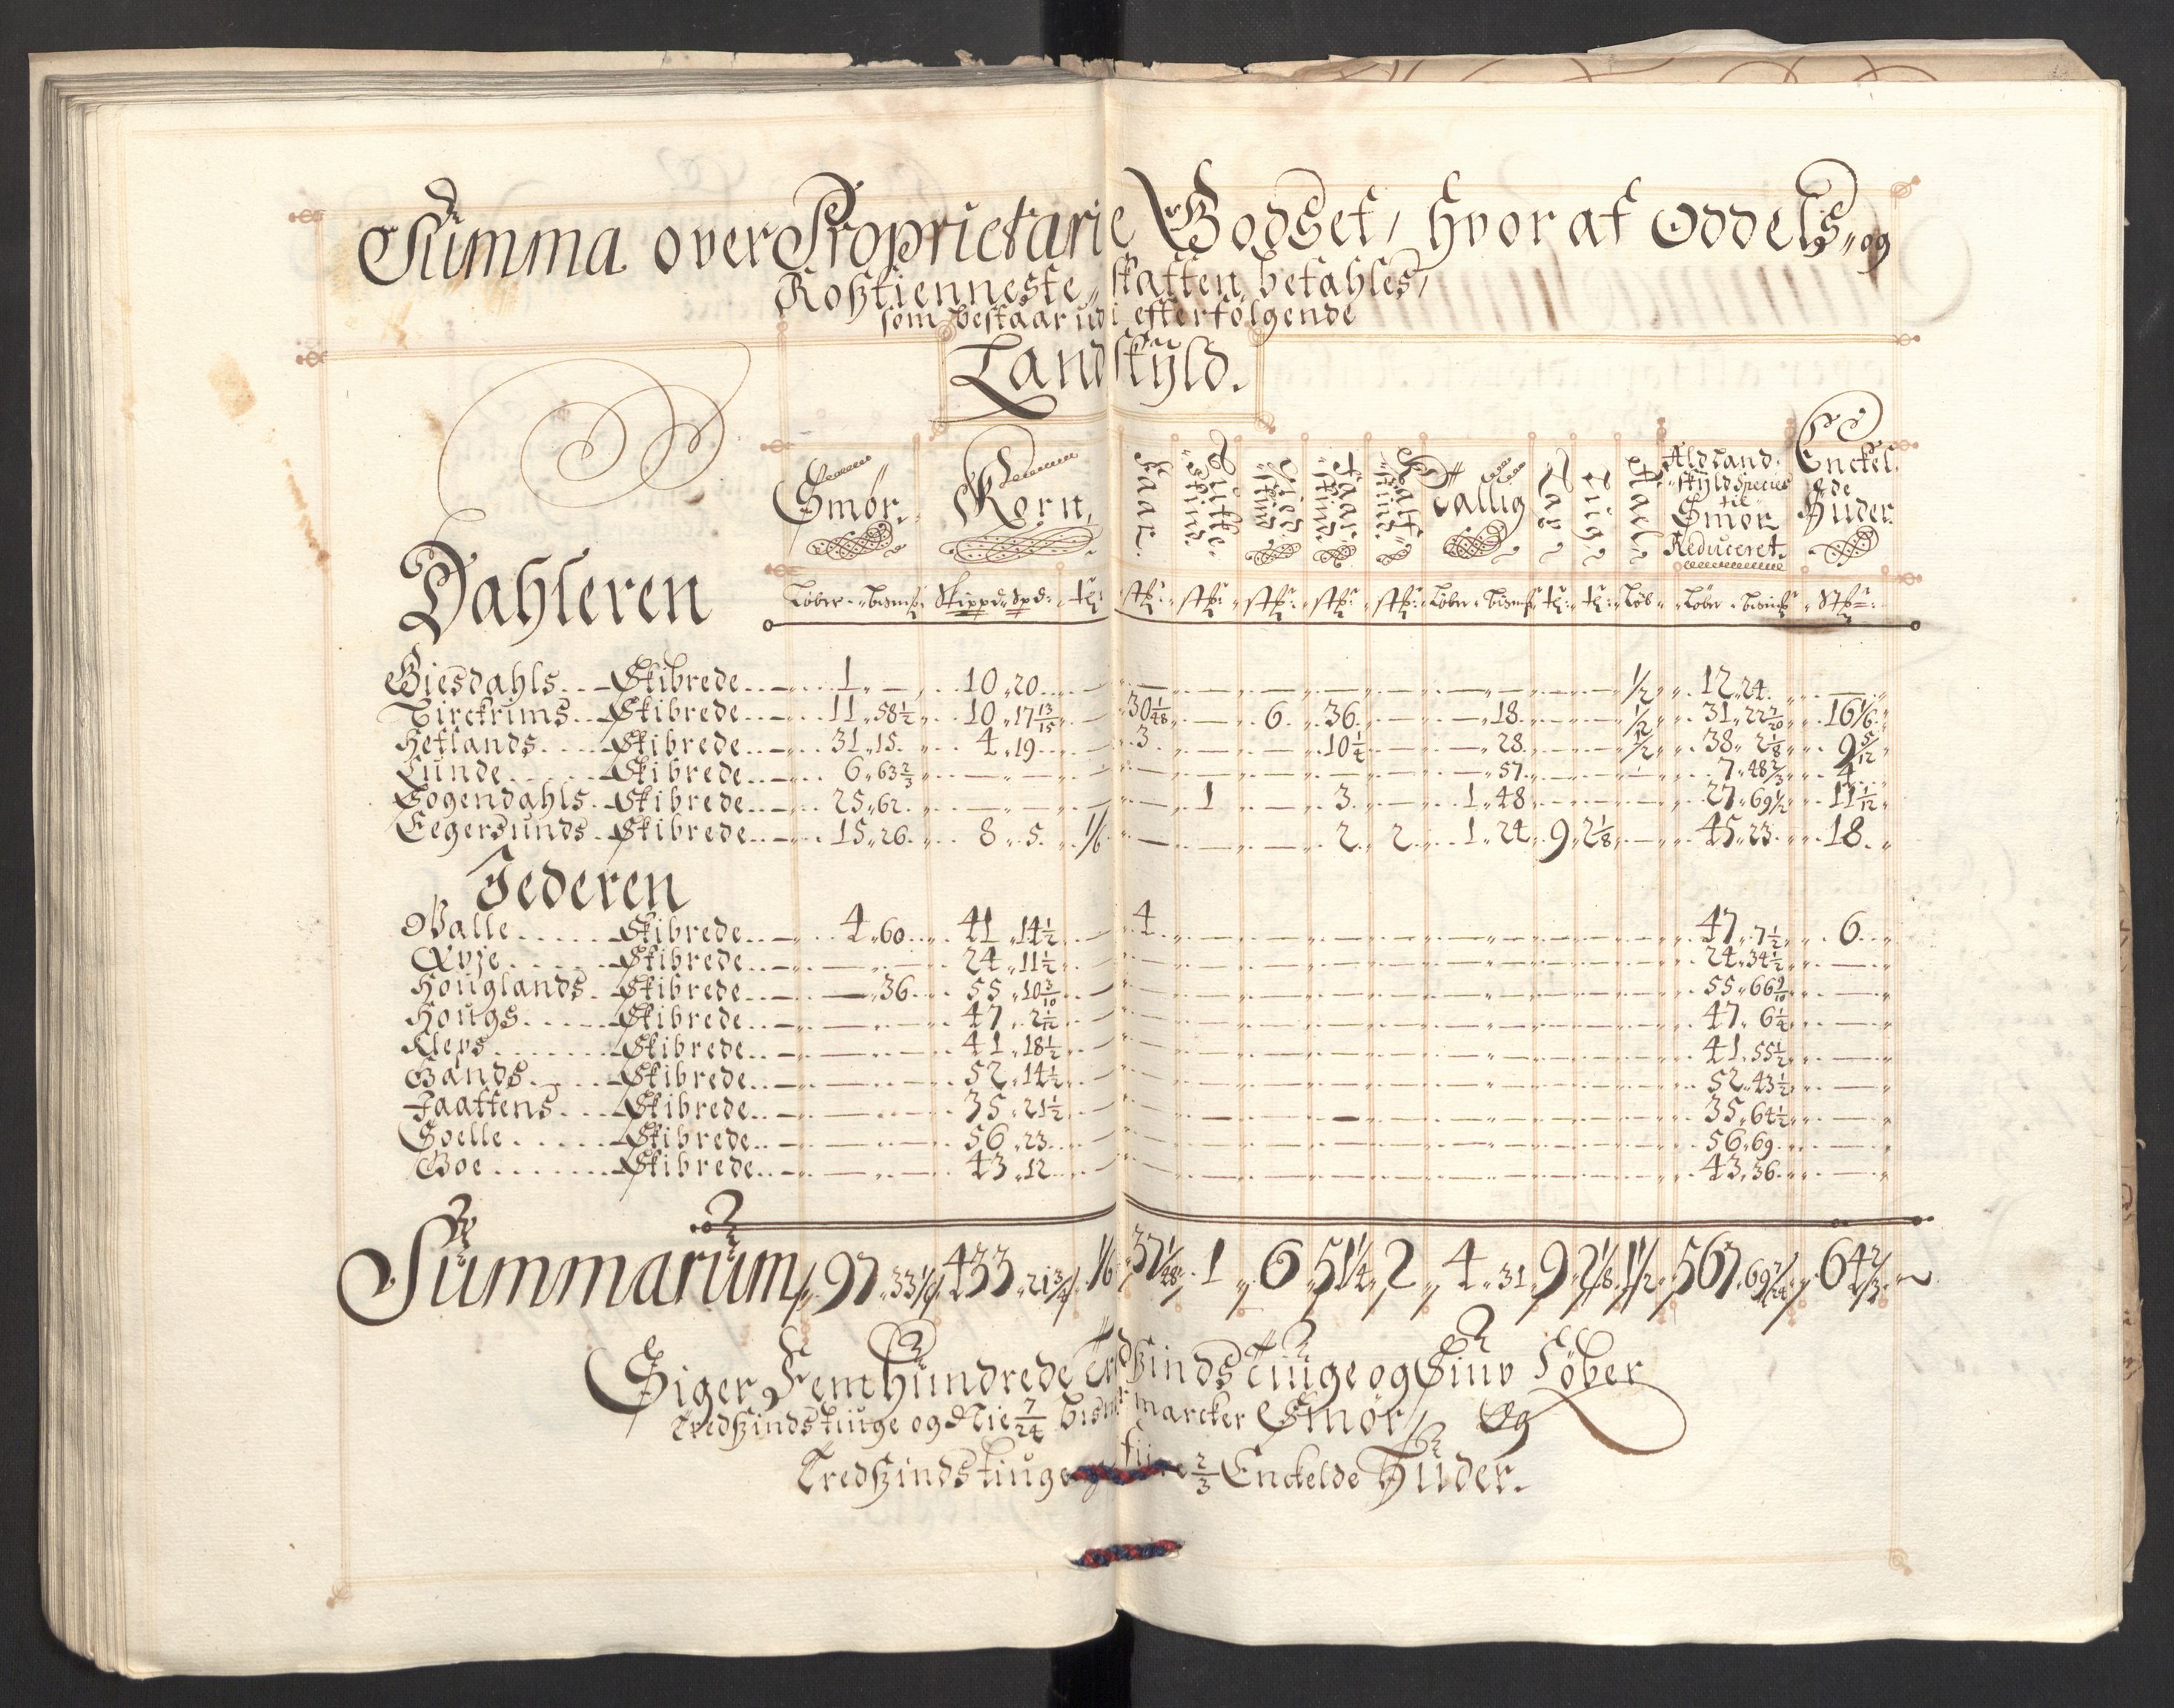 Summa over Proprietarie Godset, hvor af Oddels, og
Roßtienneste, skatten betahles,
som bestaar udi efterfølgende
Landskyld.
Smør. Korn. Faar. Bukke- skind. Gied- skind. Faar- skind. Kalf- skind. Tallig Ald Land- skyld Species til Smør Reduceret. Enckel- de Huder.
Dahleren
Løber Bismk Skippd Spd: Løber Bismk Løb Løber Bismk
Giesdahls Skibrede 1 10 20 1/2 12 24
Birckrims Skibrede 11 58 1/2 10 17 13/15 30 1/48 6 36 18 1/2 31 22 7/20 16 1/6
Hetlands Skibrede 31 15 4 19 3 10 1/4 28 1/2 38 2 1/8 9 5/12
Lunde Skibrede 6 63 2/3 57 7 48 2/3 4
Sogendahls Skibrede 25 62 1 3 1 48 27 69 1/2 11 1/12
Eegersunds Skibrede 15 26 8 5 1/6 2 2 1 24 9 2 1/8 45 23 18
Jederen
Walle Skibrede 4 60 41 14 1/2 4 47 7 1/2 6
Qvje Skibrede 24 11 1/2 24 34 1/2
Houglands Skibrede 36 55 10 3/10 55 66 9/10
Hougs Skibrede 47 2 1/12 47 6 1/4
Kleps Skibrede 41 18 1/2 41 55 1/2
Gands Skibrede 52 14 1/2 52 43 1/2
Jaattens Skibrede 35 21 1/2 35 64 1/2
Soelle Skibrede 56 23 56 69
Boe Skibrede 43 12 43 36
Summarum 97 33 1/6 433 21 3/4 1/6 37 1/48 1 6 51 1/4 2 4 31 9 2 1/8 1 1/2 567 69 7/24 64 2/3
Siger Fem hundrede Tredßindstiuge og Siuv Løber
Tredßindstiuge og Nie 7/24 bismermarcker Smør, Og
Tredßindstiuge og fiire 2/3 Enckelde Huder.